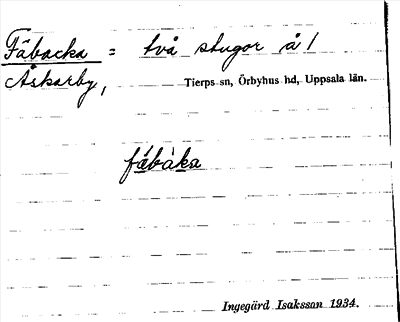 Fäbacka = två stugor å /
Åskarby, Tierps sn, Örbyhus hd, Uppsala län.
fä́bàka
Ingegärd Isaksson 1934.